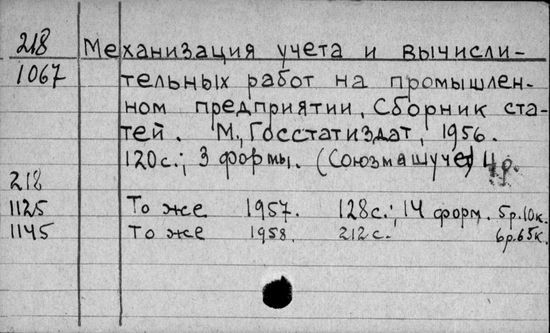 218 Механизация учета и вычисли-
1067 тельных работ на промышлен-
ном предприятии, Сборник ста-
тей. М., Госстатиздат, 1956.
120с.; 3 формы. (Союзмашучет) 4р.
218
1125 То же 1957. 128с.; 14 форм. 5р.10к.
1145 То же 1958. 212с. 6р.65к.